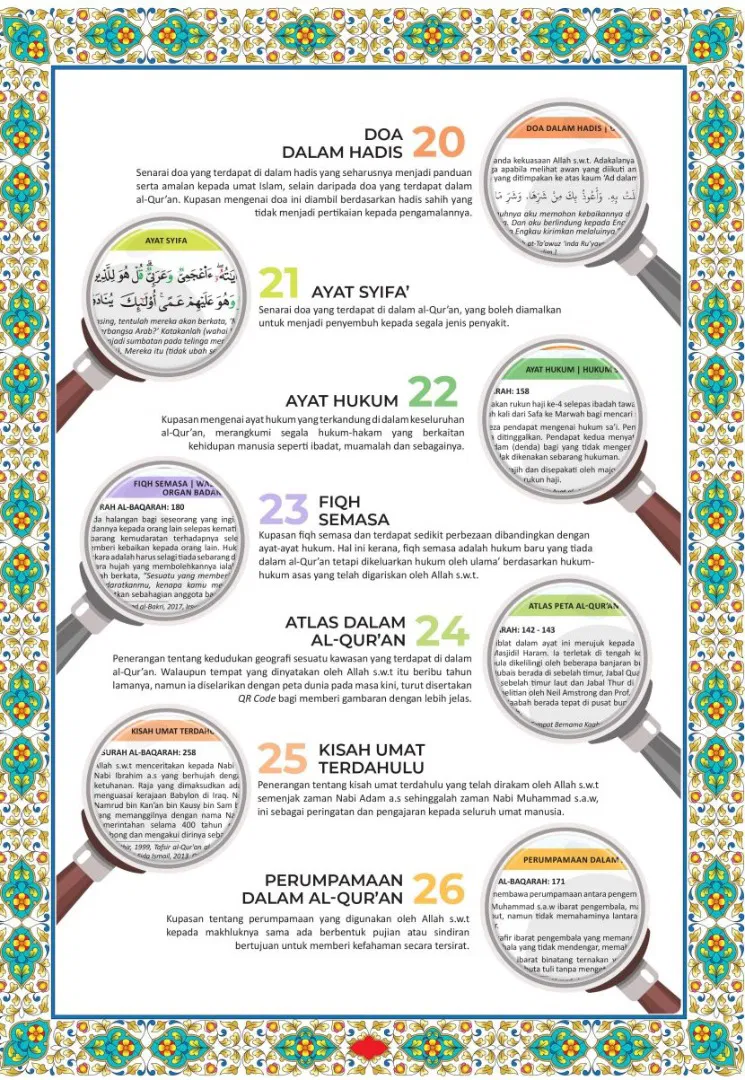 DOA
DALAM HADIS
20
Senarai doa yang terdapat di dalam hadis yang seharusnya menjadi panduan
serta amalan kepada umat Islam, selain daripada doa yang terdapat dalam
al-Qur’an. Kupasan mengenai doa ini diambil berdasarkan hadis sahih yang
tidak menjadi pertikaian kepada pengamalannya.
DOA DALAM HADIS |
anda kekuasaan Allah s.w.t. Adakalanya
apabila melihat awan yang diikuti
yang ditimpakan ke atas kaum ‘Ad dalam
بِهِ، وَأَعُوذُ بِكَ مِنْ شَرِّهَا، وَشَرِّ مَا
aku memohon kebaikannya
Dan aku berlindung kepada
Engkau kirimkan melaluinya
AYAT SYIFA
ءَا۬عْجَمِىٌّ وَعَرَبِىٌّ ۗ قُلْ هُوَ لِلَّذِينَ
وَهُوَ عَلَيْهِمْ عَمًى ۚ أُو۟لَـٰٓئِكَ
asing, tentulah mereka akan berkata,
berbangsa Arab?’ Katakanlah (wahai
menjadi sumbatan pada telinga
Mereka itu (tidak ubah
21 AYAT SYIFA’
Senarai doa yang terdapat di dalam al-Qur’an, yang boleh diamalkan
untuk menjadi penyembuh kepada segala jenis penyakit.
AYAT HUKUM 22
Kupasan mengenai ayat hukum yang terkandung di dalam keseluruhan
al-Qur’an, merangkumi segala hukum-hakam yang berkaitan
kehidupan manusia seperti ibadat, muamalah dan sebagainya.
AYAT HUKUM | HUKUM
RAH: 158
akan rukun haji ke-4 selepas ibadah
kali dari Safa ke Marwah bagi mencari
pendapat mengenai hukum sa’i.
ditinggalkan. Pendapat kedua
dam (denda) bagi yang tidak
dikenakan sebarang hukuman.
dan disepakati oleh
rukun haji.
FIQH SEMASA |
ORGAN BADAN
RAH AL-BAQARAH: 180
da halangan bagi seseorang yang
kepada orang lain selepas
barang kemudaratan terhadapnya
memberi kebaikan kepada orang lain.
adalah harus selagi tiada sebarang
hujah yang membolehkannya
berkata, “Sesuatu yang
kenapa kamu
sebahagian anggota
al-Bakri, 2017,
23 FIQH
SEMASA
Kupasan fiqh semasa dan terdapat sedikit perbezaan dibandingkan dengan
ayat-ayat hukum. Hal ini kerana, fiqh semasa adalah hukum baru yang tiada
dalam al-Qur’an tetapi dikeluarkan hukum oleh ulama’ berdasarkan hukum-
hukum asas yang telah digariskan oleh Allah s.w.t.
ATLAS DALAM
AL-QUR’AN 24
Penerangan tentang kedudukan geografi sesuatu kawasan yang terdapat di dalam
al-Qur’an. Walaupun tempat yang dinyatakan oleh Allah s.w.t itu beribu tahun
lamanya, namun ia diselarikan dengan peta dunia pada masa kini, turut disertakan
QR Code bagi memberi gambaran dengan lebih jelas.
ATLAS PETA AL-QUR’AN
RAH: 142 - 143
dalam ayat ini merujuk kepada
Masjidil Haram. Ia terletak di tengah
dikelilingi oleh beberapa banjaran
berada di sebelah timur, Jabal
sebelah timur laut dan Jabal Thur
oleh Neil Amstrong dan Prof.
Kaabah berada tepat di pusat
Bernama
KISAH UMAT TERDAHULU
SURAH AL-BAQARAH: 258
Allah s.w.t menceritakan kepada Nabi
Nabi Ibrahim a.s yang berhujah
ketuhanan. Raja yang dimaksudkan
menguasai kerajaan Babylon di Iraq.
Namrud bin Kan’an bin Kausy bin Sam
yang memanggilnya dengan nama
selama 400 tahun
dan mengakui dirinya
1999, Tafsir al-Qur’an
Ismail, 2013.
25 KISAH UMAT
TERDAHULU
Penerangan tentang kisah umat terdahulu yang telah dirakam oleh Allah s.w.t
semenjak zaman Nabi Adam a.s sehinggalah zaman Nabi Muhammad s.a.w,
ini sebagai peringatan dan pengajaran kepada seluruh umat manusia.
PERUMPAMAAN
DALAM AL-QUR’AN 26
Kupasan tentang perumpamaan yang digunakan oleh Allah s.w.t
kepada makhluknya sama ada berbentuk pujian atau sindiran
bertujuan untuk memberi kefahaman secara tersirat.
PERUMPAMAAN DALAM
AL-BAQARAH: 171
membawa perumpamaan antara
Muhammad s.a.w ibarat pengembala,
namun tidak memahaminya lantaran
ibarat pengembala yang
yang tidak mendengar,
ibarat binatang ternakan
buta tuli tanpa